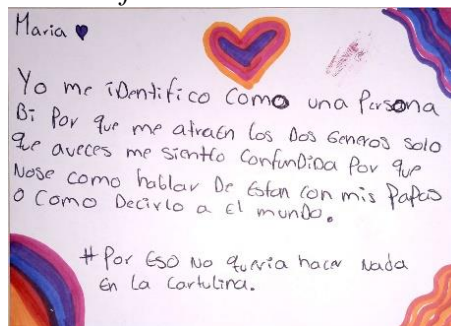 Maria
Yo me iDentifico como una Persona
Bi Por que me atraen los Dos Generos solo
que aveces me siento confunDiDa Por que
Nose como hablar De Estan con mis Papas
o como Decirlo a El munDo.
# Por Eso No queria hacer Nada
En La cartulina.